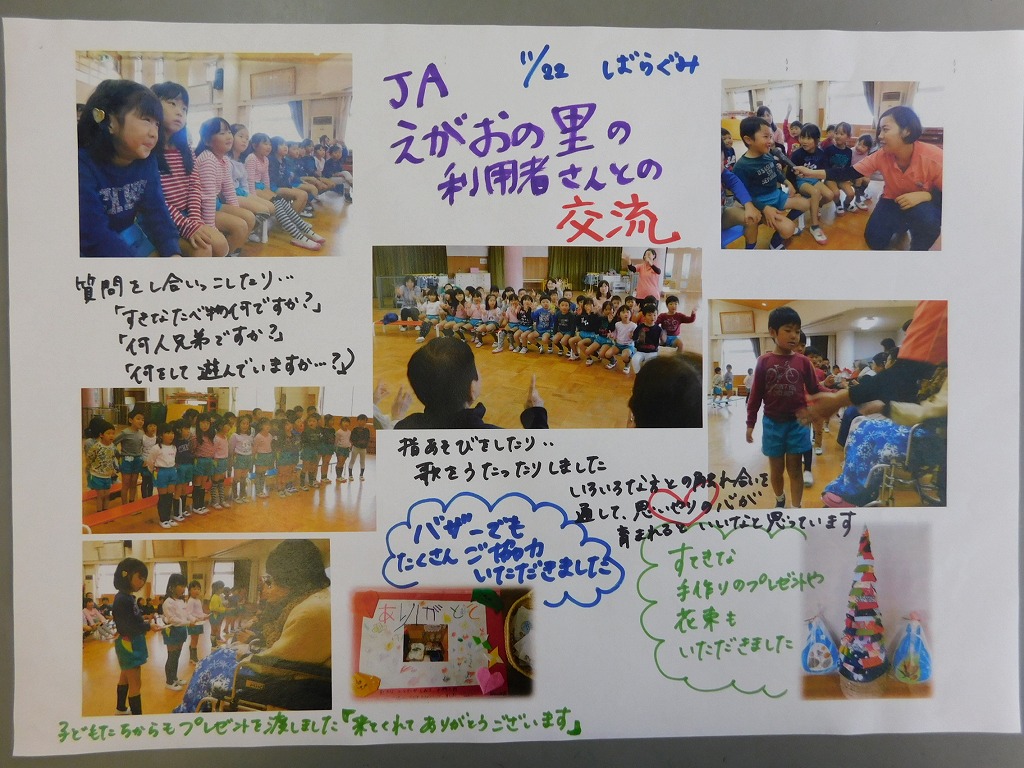 11/22 ばらぐみ
JA
えがおの里の
利用者さんとの
交流
質問をし合いっこしたり・・
「すきなたべ物何ですか?」
「何人兄弟ですか?」
「何をして遊んでいますか…?」
指あそびをしたり・・
歌をうたったりしました
いろいろな方との触れ合いを
通して、思いやりの心が
育まれるといいなと思っています
バザーでも
たくさんご協力
いただきました
すてきな
手作りのプレゼントや
花束も
いただきました
ありがとう
子どもたちからもプレゼントを渡しました「来てくれてありがとうございます」